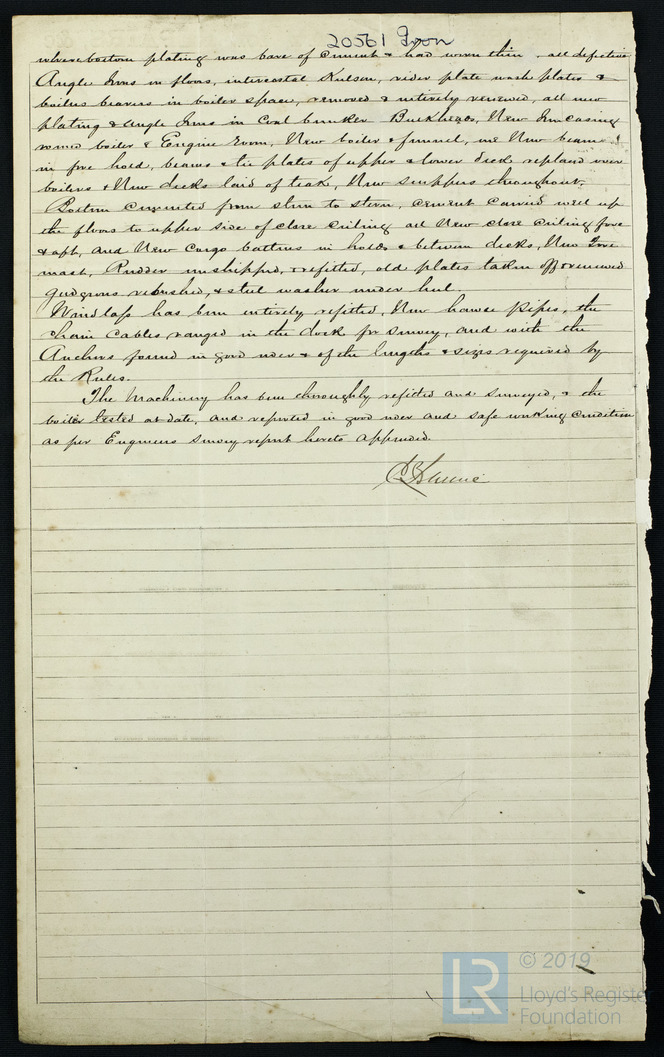 20561 Iron
where bottom plating was bare of cement & had worn thin, all defective
Angle Irons in floors, intercostal Kelson, rider plate wash plates &
boilers bearers in boiler space, removed & entirely renewed, all new
plating & angle Irons in Coal bunker Bulkheads, New Iron casing
round boiler & Engine Room, New boiler & funnel, New beams
in fore hold, beams & tie plates of upper & lower deck replaced over
boilers & New decks laid of teak, New scuppers throughout,
Bottom cemented from stem to stern, cement carried well up
the floors to upper side of close ceiling all New close ceiling fore
& aft, and New Cargo battens in holds & between decks, New Fore
mast, Rudder unshipped, & refitted, old plates taken off & renewed
gudgeons rebushed, & steel washer under heel.
Windlass has been entirely refitted, New hawse Pipes, the
Chain Cables, ranged in the dock for survey, and with the
Anchors found in good order & of the lengths & sizes required by
the Rules.
The Machinery has been thoroughly refitted and surveyed, & the
boiler tested at date, and reported in good order and safe working condition
as per Engineers survey report hereto appended.
© 2019
LR
Lloyd's Register
Foundation